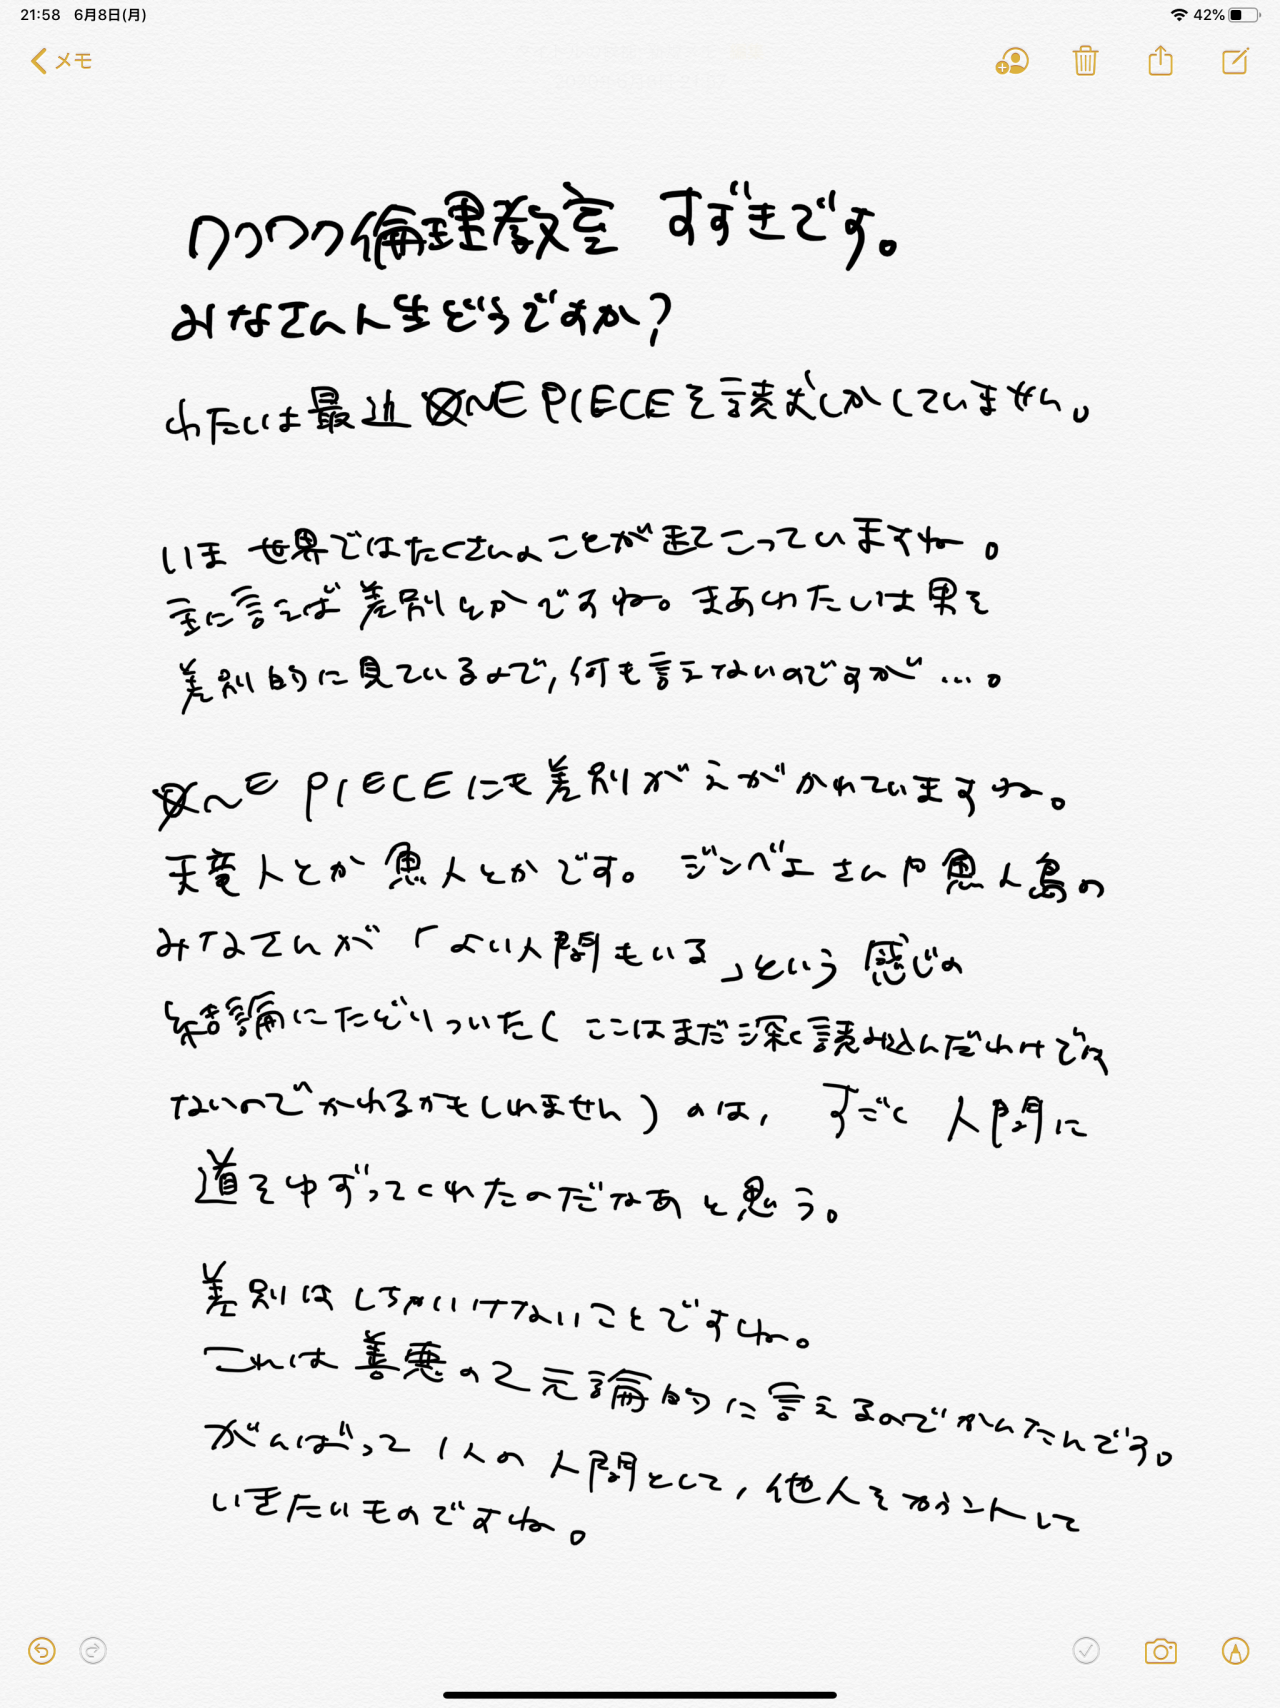 21:58 6月8日(月)
42%
メモ
ワクワク倫理教室 すずきです。
みなさん人生どうですか?
わたしは最近ONE PIECEを読むしかしていません。
いま世界ではたくさんのことが起こっていますね。
主に言えば差別とかですね。まあわたしは男を
差別的に見ているので,何も言えないのですが…。
ONE PIECEにも差別がえがかれていますね。
天竜人とか魚人とかです。ジンベエさんや魚人島の
みなさんが「よい人間もいる」という感じの
結論にたどりついた(ここはまだ深く読み込んだわけでは
ないのでかわるかもしれません)のは,すごく人間に
道をゆずってくれたのだなあと思う。
差別はしちゃいけないことですね。
これは善悪の2元論的に言えるのでかんたんです。
がんばって1人の人間として,他人をカウントして
いきたいものですね。